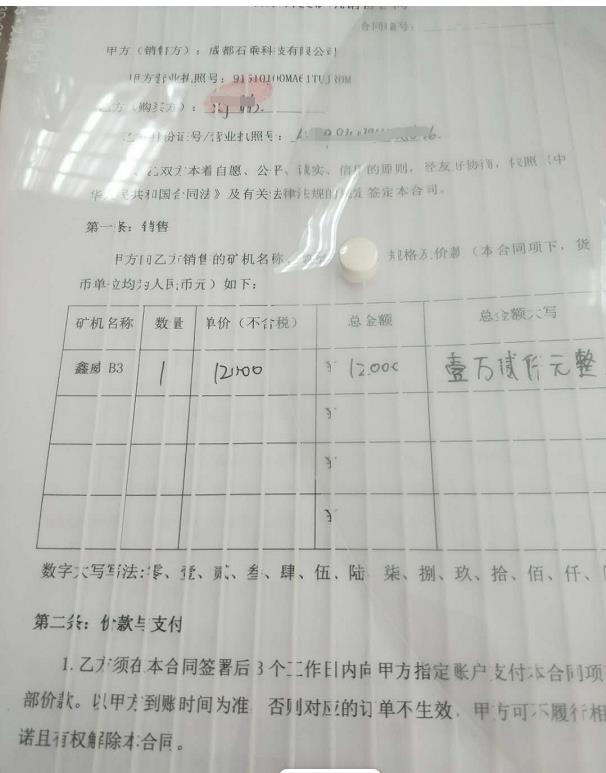 合同编号：
甲方（销售方）：成都石乘科技有限公司
甲方营业执照号：
乙方（购买方）：
乙方身份证号/营业执照号：
乙双方本着自愿、公平、诚实、信用的原则，经友好协商，依照《中
华人民共和国合同法》及有关法律法规的规定签定本合同。
第一条：销售
甲方向乙方销售的矿机名称、 规格及价款（本合同项下，货
币单位均为人民币元）如下：
矿机名称 数量 单价（不含税） 总金额 总金额大写
鑫威 B3 1 12000 12000 壹万贰仟元整
数字大写写法:零、壹、贰、叁、肆、伍、陆 柒、捌、玖、拾、佰、仟、
第二条：价款与支付
1.乙方须在本合同签署后 3 个工作日内向甲方指定账户支付本合同项
部价款。以甲方到账时间为准 否则对应的订单不生效，甲方可不履行相
诺且有权解除本合同。